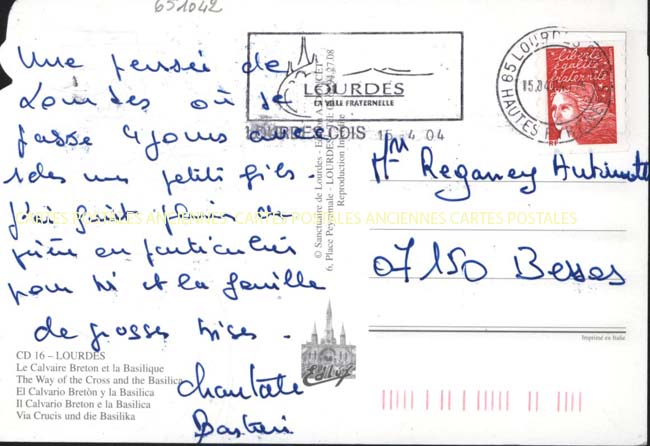 651042
Une pensée de
Lourdes où je
passe 4 jours avec
des mes petits fils.
J'ai fait plein de
prière en particulier
pour toi et la famille
de grosses bises.
Chantale
LOURDES
LA VILLE FRATERNELLE
LOURDES CDIS 15-4 04
65 LOURDES
15.04
HAUTES PYRENEES
liberté
égalité
fraternité
RF
© Sanctuaire de Lourdes
6, Place Peyramale - LOURDES
Reproduction
Mr Reganey
07150 Bessas
CARTES POSTALES ANCIENNES CARTES POSTALES ANCIENNES CARTES POSTALES
Imprimé en Italie
CD 16 – LOURDES
Le Calvaire Breton et la Basilique
The Way of the Cross and the Basilica
El Calvario Bretòn y la Basilica
Il Calvario Bretone e la Basilica
Via Crucis und die Basilika